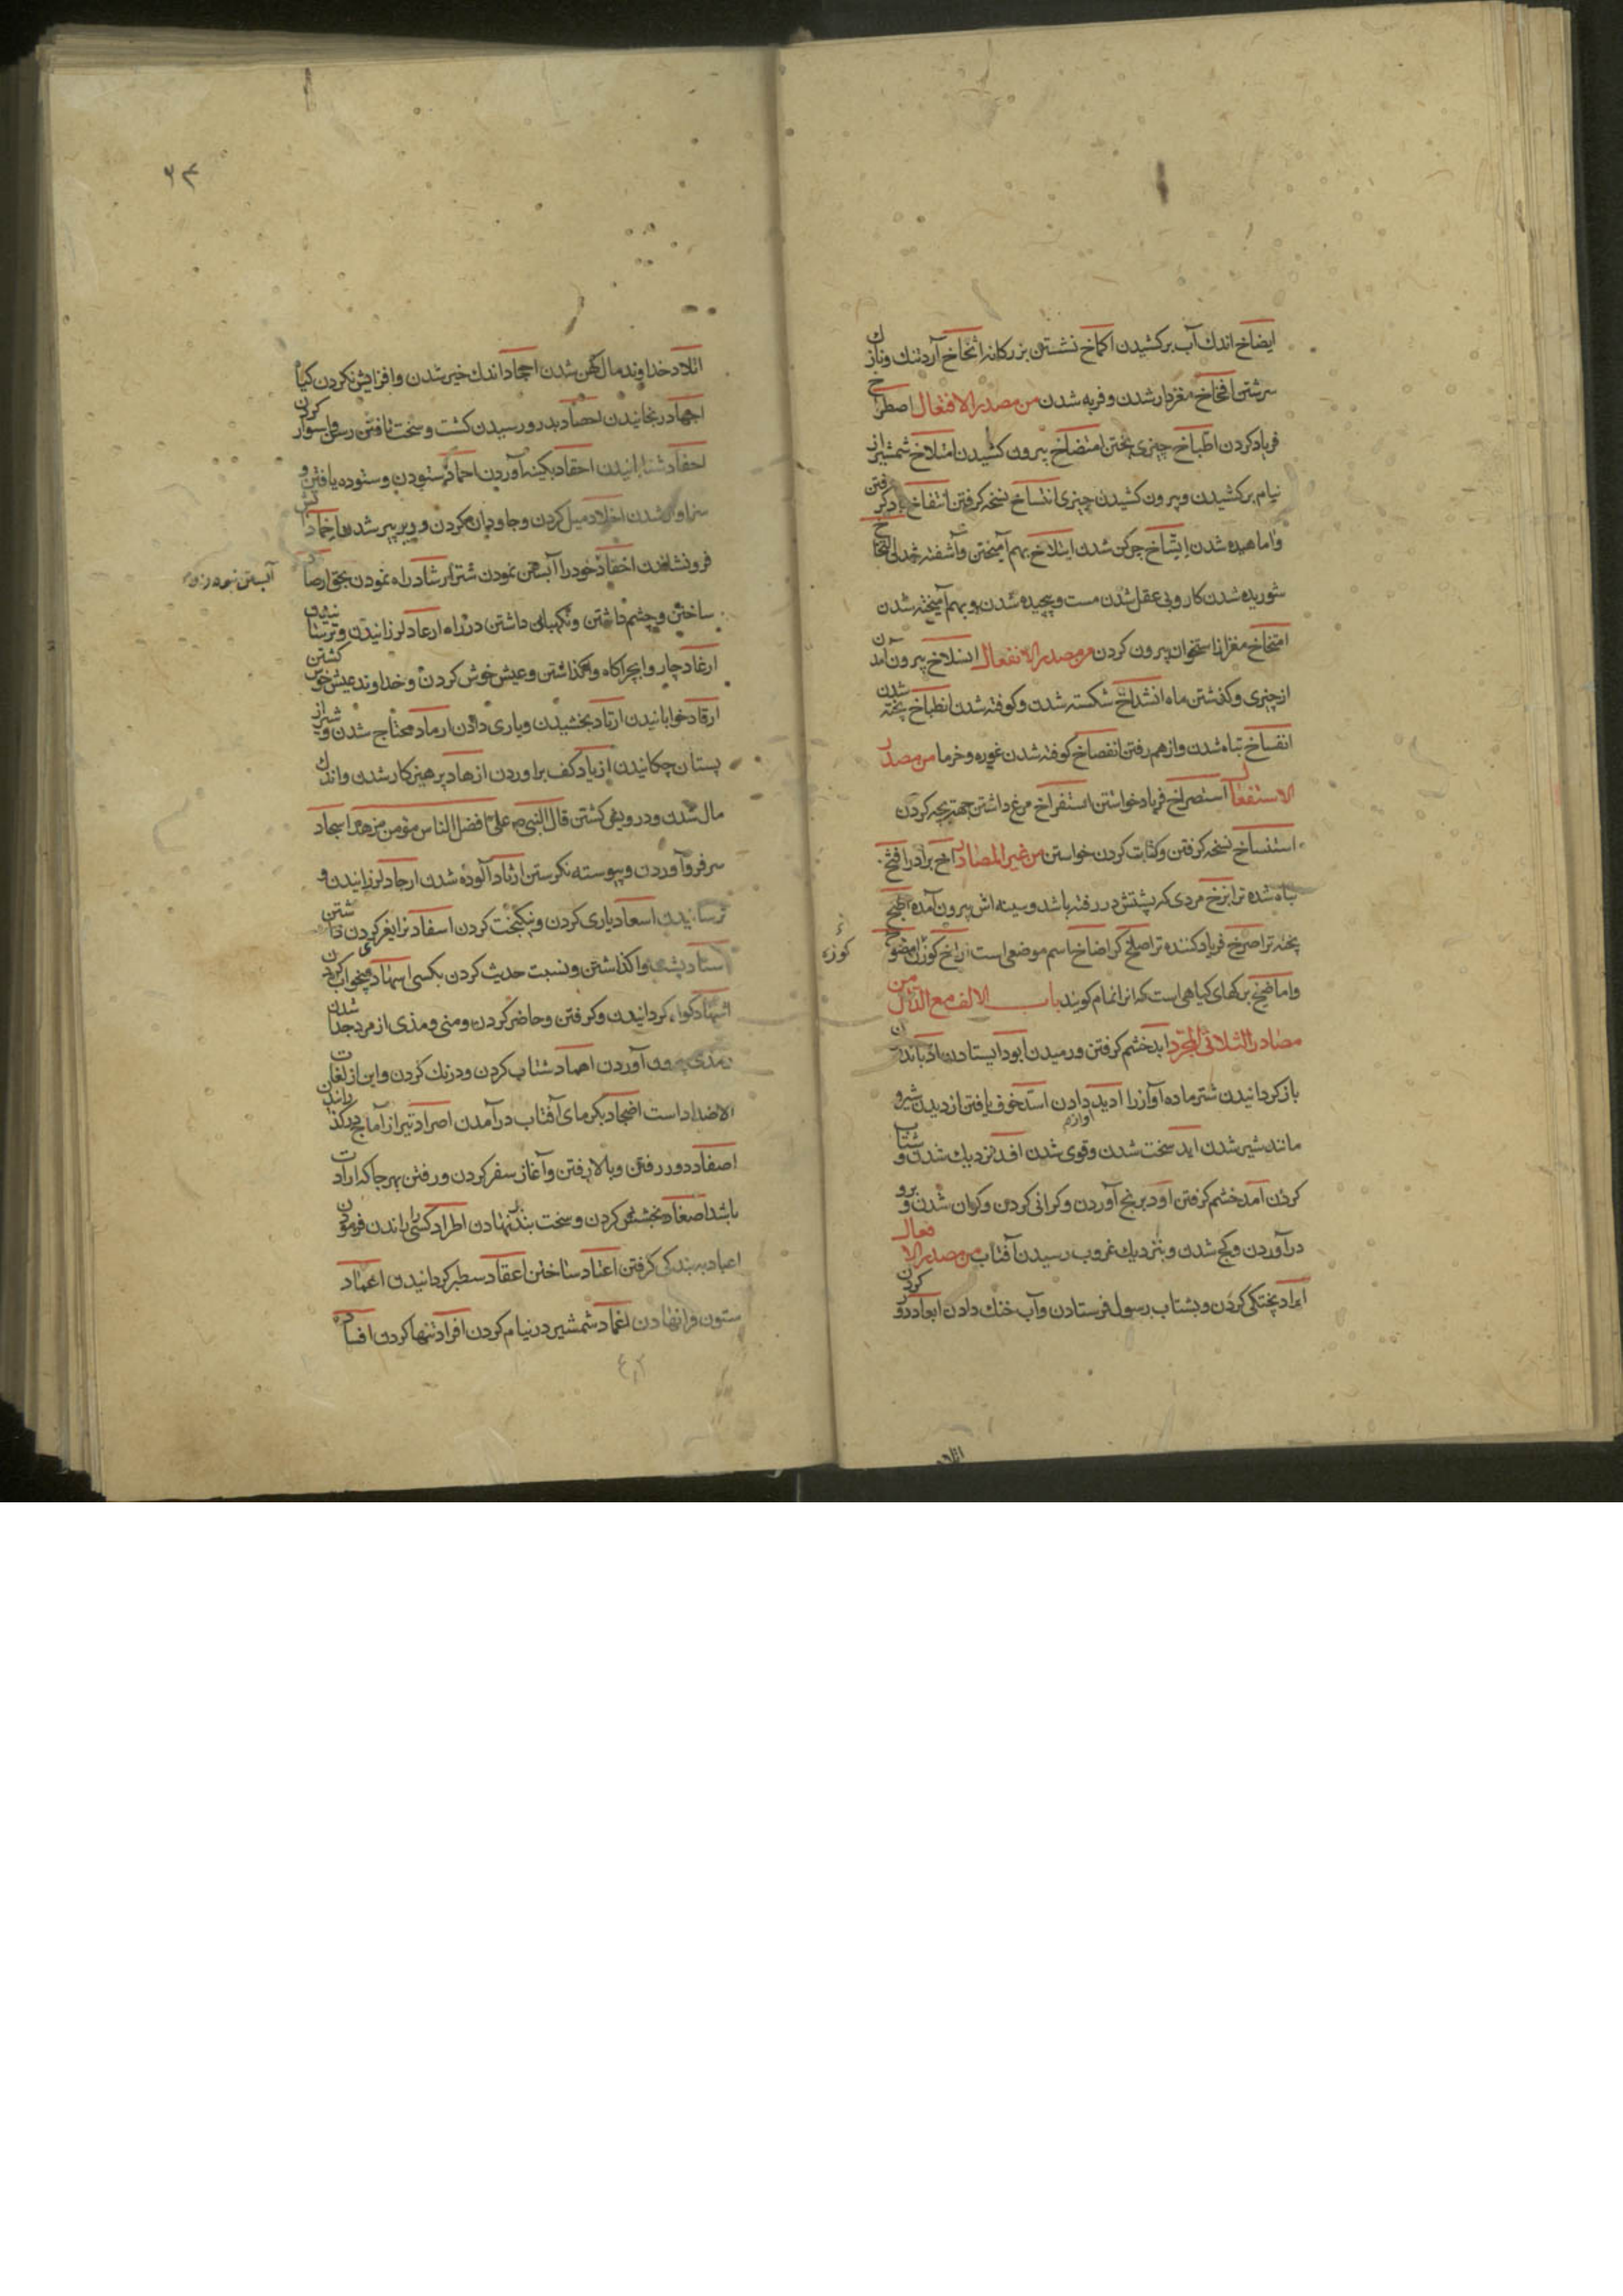 ایضاخ اندك آب بركشیدن اكماخ نشستن بزركانه انخاخ آرد تنك و نازك
سرشتن افخاخ مغزدار شدن و فربه شدن من مصدر الافتعال اصطراخ
فریاد كردن اطباخ چیزی پختن امتضاخ بیرون كشیدن امتلاخ شمشیر از
نیام بركشیدن و بیرون كشیدن چیزی انتساخ نسخه كرفتن انتفاخ باد كرفتن
و اماهیده شدن ایتساخ چركن شدن ایتلاخ بهم آمیختن و آشفته شدن التخاخ
شوریده شدن كار و بی عقل شدن مست و پیچیده شدن و بهم آمیخته شدن
امتخاخ مغز از استخوان بیرون كردن من مصدر الانفعال انسلاخ بیرون آمدن
از چیزی و كذشتن ماه انشداخ شكسته شدن و كوفته شدن انطباخ پخته شدن
انفساخ تباه شدن و از هم رفتن انفضاخ كوفته شدن غوره و خرما من مصدر
الاستفعال استصراخ فریاد خواستن استفراخ مرغ داشتن جهة بچه كردن
استنساخ نسخه كرفتن و كتابت كردن خواستن من غیر المصادر اخ برادر افتخ
تباه شده تر ابزخ مردی كه پشتش در رفته باشد و سینه اش بیرون آمده اطبخ
پخته تر اصرخ فریاد كننده تر اصلخ كر اضاخ اسم موضعی است
و اماضیخ بركهای كیاهی است كه انرا ثمام كویند باب الالف مع الدال من
مصادر الثلاثی المجرد ابد خشم كرفتن و رمیدن ابود ایستادن
باز كردانیدن شتر ماده آواز را ادید دادن آواز اسد خوف یافتن از دیدن شیر و
مانند شیر شدن اید سخت شدن و قوی شدن افد نزدیك شدن و شتاب
كردن امد خشم كرفتن اود برنج آوردن و كرانی كردن و كران شدن و برو
درآوردن و كج شدن و بنزدیك غروب رسیدن آفتاب من مصدر الافعال
ابراد پختكی كردن و بشتاب رسول فرستادن و آب خنك دادن ابعاد دور كردن
كوزه
اتلاد
۶۳
اتلاد خداوند مال كهن شدن اجحاد اندك خیر شدن و افزایش نكردن كیاه
اجهاد رنجانیدن احصاد بدرو رسیدن كشت و سخت تافتن رسن و استوار كردن
احفاد شتابانیدن احقاد بكینه آوردن احماد ستودن و ستوده یافتن و
سزاوار شدن اخلاد میل كردن و جاودان كردن و دیر پیر شدن اخماد
فرونشاندن اخفاد خود را آبستن نمودن شتر ارشاد راه نمودن بحق ارصاد
ساختن و چشم داشتن و نكهبانی داشتن در راه ارعاد لرزانیدن و ترسانیدن
ارغاد چاروا بچراكاه واكذاشتن و عیش خوش كردن و خداوند عیش خوش كشتن
ارقاد خوابانیدن ارفاد بخشیدن و یاری دادن ارماد محتاج شدن و شیر از
پستان چكانیدن ازباد كف براوردن ازهاد پرهیزكار شدن و اندك
مال شدن و درویش كشتن قال النبی ص علی افضل الناس مؤمن مزهد اسجاد
سر فرو آوردن و پیوسته نكرستن ارثاد آلوده شدن ارجاد لرزانیدن و
ترسانیدن اسعاد یاری كردن و نیكبخت كردن اسفاد نر ایغر كردن
اسناد پشت واكذاشتن و نسبت حدیث كردن بكسی اسهاد بیخواب كردن
اشهاد كواه كردانیدن و كرفتن و حاضر كردن و منی و مذی از مرد جدا شدن
و مذی بیرون آوردن اهماد شتاب كردن و درنك كردن و این از لغات
الاضداد است اضجاد بكرمای آفتاب درآمدن اصراد تیر از آماج دركذرانیدن
اصعاد دور رفتن و بالا رفتن و آغاز سفر كردن و رفتن بهر جا كه ارادت
باشد اصفاد بخشش كردن و سخت بند نهادن اطراد كسی را راندن فرمودن
اعباد ببندكی كرفتن اعتاد ساختن اعقاد سطبر كردانیدن اعماد
ستون فرانهادن اغماد شمشیر در نیام كردن افراد تنها كردن افساد
آبستن نمودن